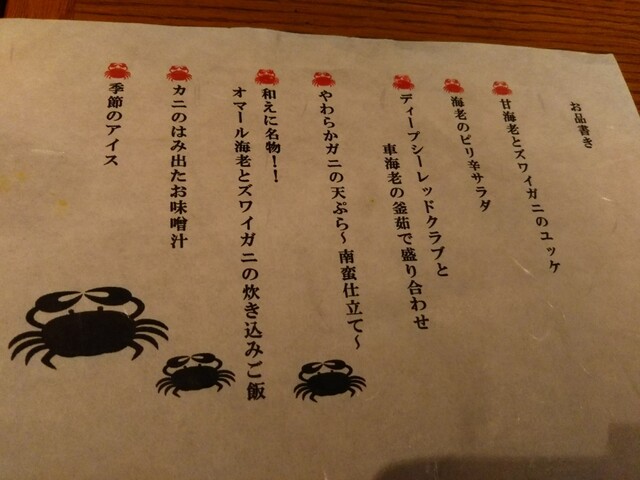 お品書き
甘海老とズワイガニのユッケ
海老のピリ辛サラダ
ディープシーレッドクラブと
車海老の釜茹で盛り合わせ
やわらかガニの天ぷら～南蛮仕立て～
和えに名物！！
オマール海老とズワイガニの炊き込みご飯
カニのはみ出たお味噌汁
季節のアイス